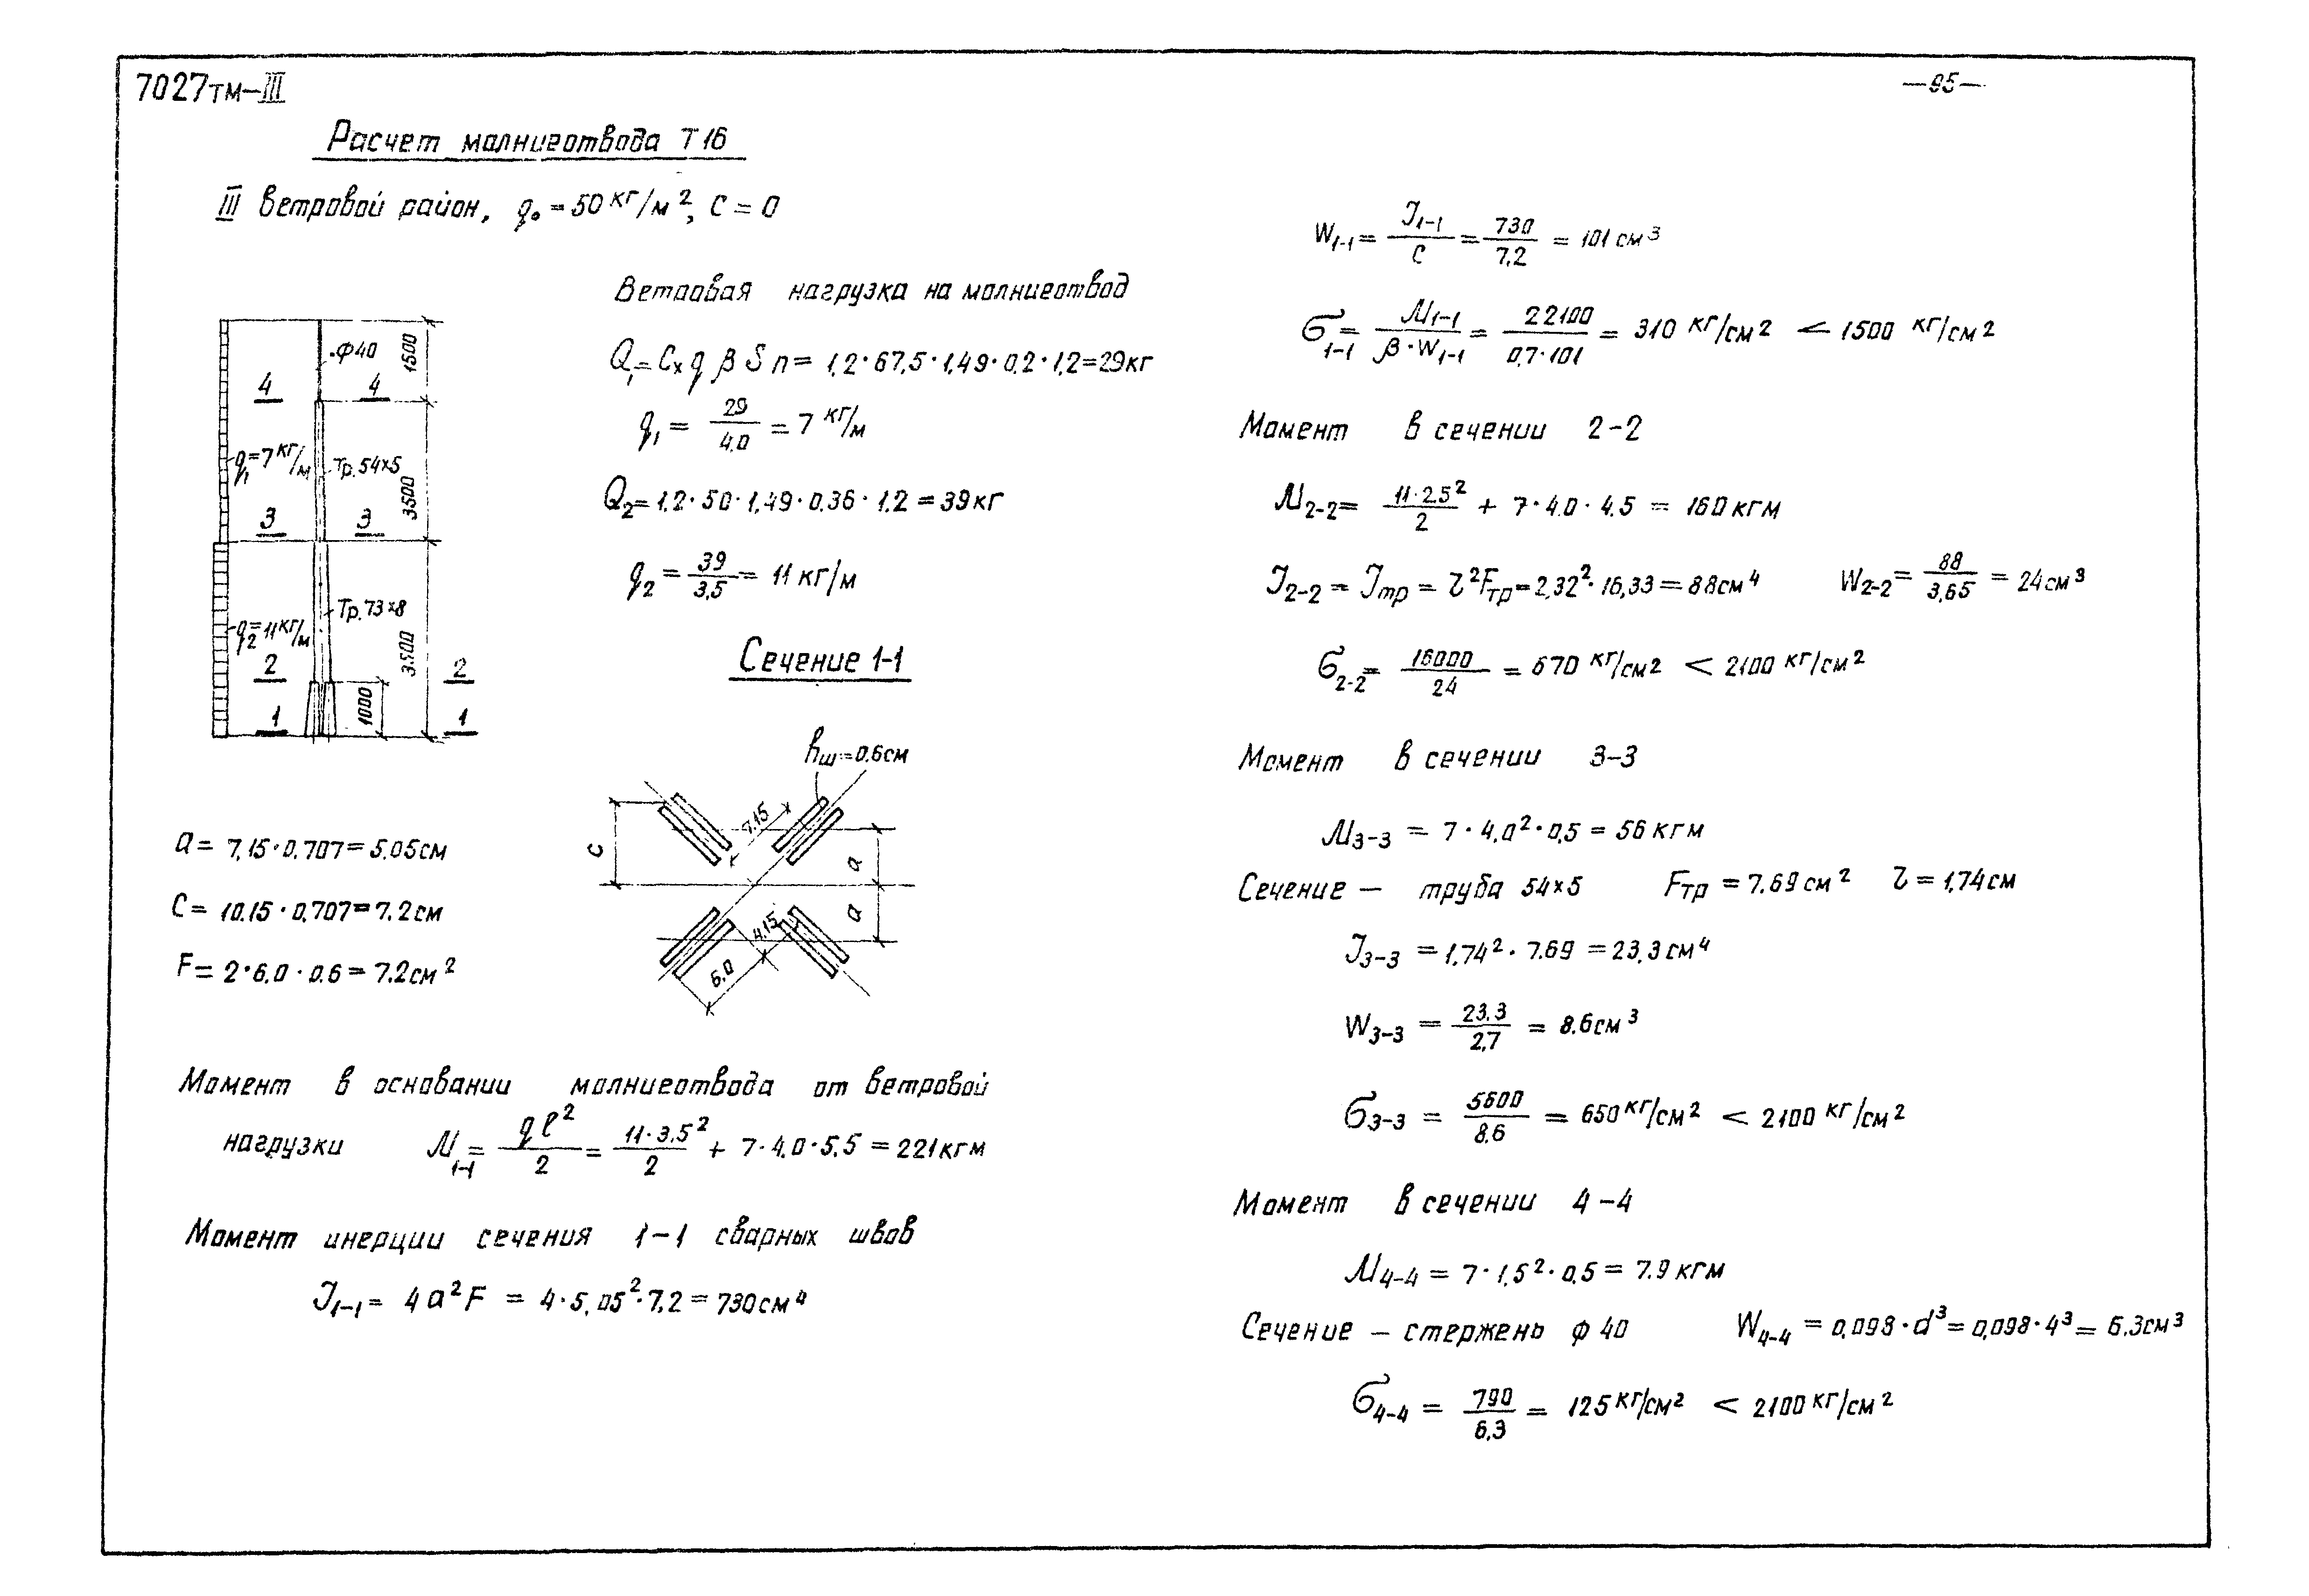 7027тм-III
-95-
Расчет молниеотвода Т16
III ветровой район, q₀ = 50 кг/м², С = 0
Ветровая нагрузка на молниеотвод
Q₁ = Cₓ q β S n = 1,2·67,5·1,49·0,2·1,2 = 29кг
q₁ = 29/4,0 = 7 кг/м
Q₂ = 1,2·50·1,49·0,36·1,2 = 39кг
q₂ = 39/3,5 = 11 кг/м
ф40
1500
4 4
q₁=7 кг/м
Тр. 54×5
3500
3 3
Тр. 73×8
q₂=11 кг/м
3500
2 2
1000
1 1
Сечение 1-1
hш=0.6см
7.15
С
а
а
4.15
6,0
а = 7,15·0,707 = 5.05см
С = 10.15·0,707 = 7.2см
F = 2·6,0·0.6 = 7.2см²
Момент в основании молниеотвода от ветровой
нагрузки М₁₋₁ = qℓ²/2 = 11·3,5²/2 + 7·4,0·5,5 = 221кгм
Момент инерции сечения 1-1 сварных швов
J₁₋₁ = 4а²F = 4·5,05²·7,2 = 730см⁴
W₁₋₁ = J₁₋₁/С = 730/7,2 = 101 см³
σ₁₋₁ = М₁₋₁/β·W₁₋₁ = 22100/0,7·101 = 310 кг/см² < 1500 кг/см²
Момент в сечении 2-2
М₂₋₂ = 11·2.5²/2 + 7·4.0·4.5 = 160кгм
J₂₋₂ = Jтр = r²Fтр = 2,32²·16,33 = 88см⁴ W₂₋₂ = 88/3,65 = 24см³
σ₂₋₂ = 16000/24 = 670 кг/см² < 2100 кг/см²
Момент в сечении 3-3
М₃₋₃ = 7·4,0²·0,5 = 56кгм
Сечение - труба 54×5 Fтр = 7.69см² r = 1,74см
J₃₋₃ = 1,74²·7.69 = 23,3см⁴
W₃₋₃ = 23.3/2,7 = 8.6см³
σ₃₋₃ = 5600/8.6 = 650 кг/см² < 2100 кг/см²
Момент в сечении 4-4
М₄₋₄ = 7·1,5²·0,5 = 7.9кгм
Сечение - стержень ф40 W₄₋₄ = 0,098·d³ = 0,098·4³ = 6.3см³
σ₄₋₄ = 790/6,3 = 125 кг/см² < 2100 кг/см²